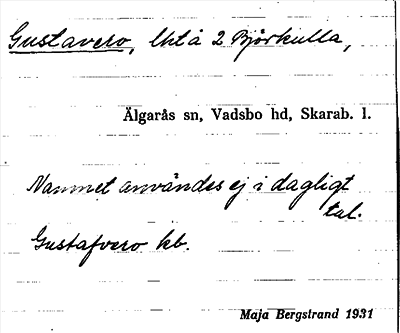 Gustavero, lht å 2 Björkulla,
Älgarås sn, Vadsbo hd, Skarab. l.
Namnet användes ej i dagligt
tal.
Gustafvero kb.
Maja Bergstrand 1931